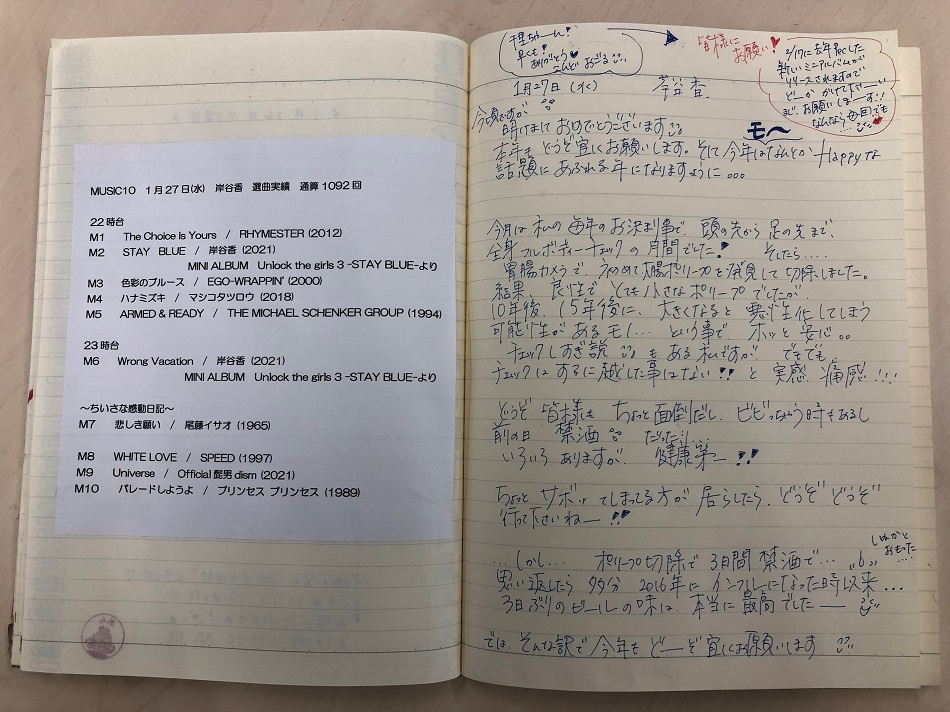 MUSIC10 1月27日(水) 岸谷香 選曲実績 通算1092回
22時台
M1 The Choice Is Yours / RHYMESTER (2012)
M2 STAY BLUE / 岸谷香 (2021)
MINI ALBUM Unlock the girls 3 -STAY BLUE-より
M3 色彩のブルース / EGO-WRAPPIN' (2000)
M4 ハナミズキ / マシコタツロウ (2018)
M5 ARMED & READY / THE MICHAEL SCHENKER GROUP (1994)
23時台
M6 Wrong Vacation / 岸谷香 (2021)
MINI ALBUM Unlock the girls 3 -STAY BLUE-より
～ちいさな感動日記～
M7 悲しき願い / 尾藤イサオ (1965)
M8 WHITE LOVE / SPEED (1997)
M9 Universe / Official髭男dism (2021)
M10 パレードしようよ / プリンセス プリンセス (1989)
早くも!
ありがとう♥
こんど おごる
皆様に
お願い!♥
新しいミニアルバムが
リリースされますので
どーか かけて下さーい
お願いしまーす!!
なんなら毎回でも
1月27日(水) 岸谷香
今頃ですが
明けましておめでとうございます
モ〜
本年も どうぞ宜しくお願いします。そして今年はなんとか Happyな
話題にあふれる年になりますように...
今月は 私の毎年のお決まり事で、頭の先から足の先まで、
全身フルボディーチェックの月間でした! そしたら....
胃腸カメラで、初めて大腸ポリープを発見して切除しました。
結果、良性で とても小さなポリープでしたが、
10年後、15年後に、大きくなると 悪性化してしまう
可能性があるモノ... という事で ホッと安心。。
チェックしすぎ説 もある私ですが でもでも、
チェックはするに越した事はない!! と 実感、痛感!!!
どうぞ 皆様も ちょっと面倒だし、ビビっちゃう時もあるし
前の日 禁酒 だったり...
いろいろ ありますが、 健康第一!!
ちょっと サボッてしまってる方が 居らしたら、どうぞ どうぞ
行って下さいねー!!
...しかし... ポリープ切除で 3日間 禁酒で...
しぬかと
おもった
....
思い返したら 多分 2016年に インフルになった時以来...
3日ぶりのビールの味は、本当に最高でしたー
では、そんな訳で 今年も どーぞ宜しくお願いします